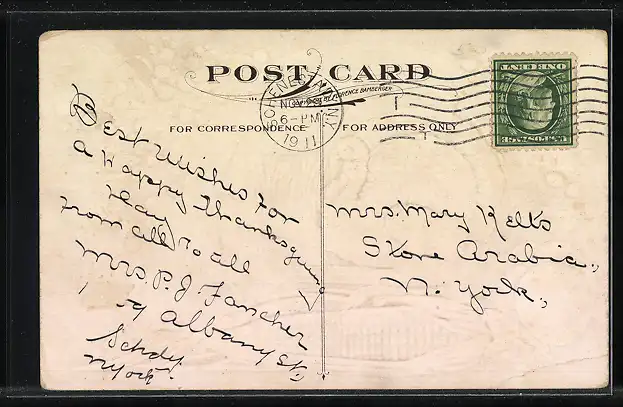 POST CARD
COPYRIGHT BY FLORENCE BAMBERGER
SCHENECTADY, N.Y.
NOV
6-PM
1911
ONE CENT
U.S. POSTAGE
FOR CORRESPONDENCE
FOR ADDRESS ONLY
Best Wishes For
a Happy Thanksgiving
Day
From all to all
Mrs. P. J. Fancher
Albany St.
Schdy
N York.
Mrs. Mary Kelts
Stone Arabia,
N. York,